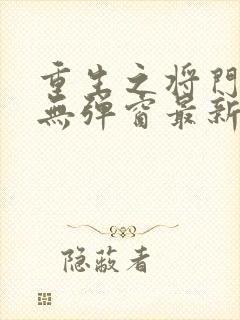 重生之将門
無弹窗最新
隐蔽者